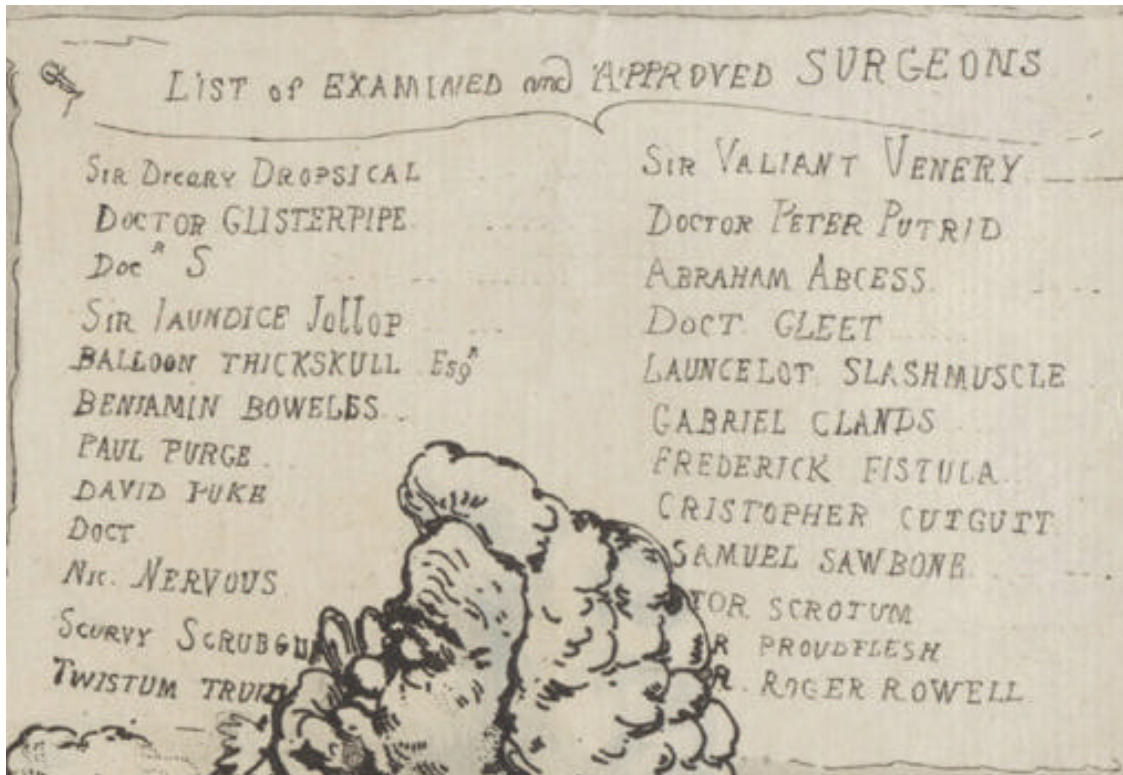 LIST of EXAMINED and APPROVED SURGEONS
SIR DREARY DROPSICAL
DOCTOR GLISTERPIPE
Docᴿ S
SIR JAUNDICE JOLLOP
BALLOON THICKSKULL Esqᴿ
BENJAMIN BOWELES
PAUL PURGE
DAVID PUKE
DOCT
NIC. NERVOUS
SCURVY
TWISTUM
SIR VALIANT VENERY
DOCTOR PETER PUTRID
ABRAHAM ABCESS
DOCT GLEET
LAUNCELOT SLASHMUSCLE
GABRIEL CLANDS
FREDERICK FISTULA
CRISTOPHER CUTGUTT
SAMUEL SAWBONE
TOR SCROTUM
R PROUDFLESH
R. ROGER ROWELL